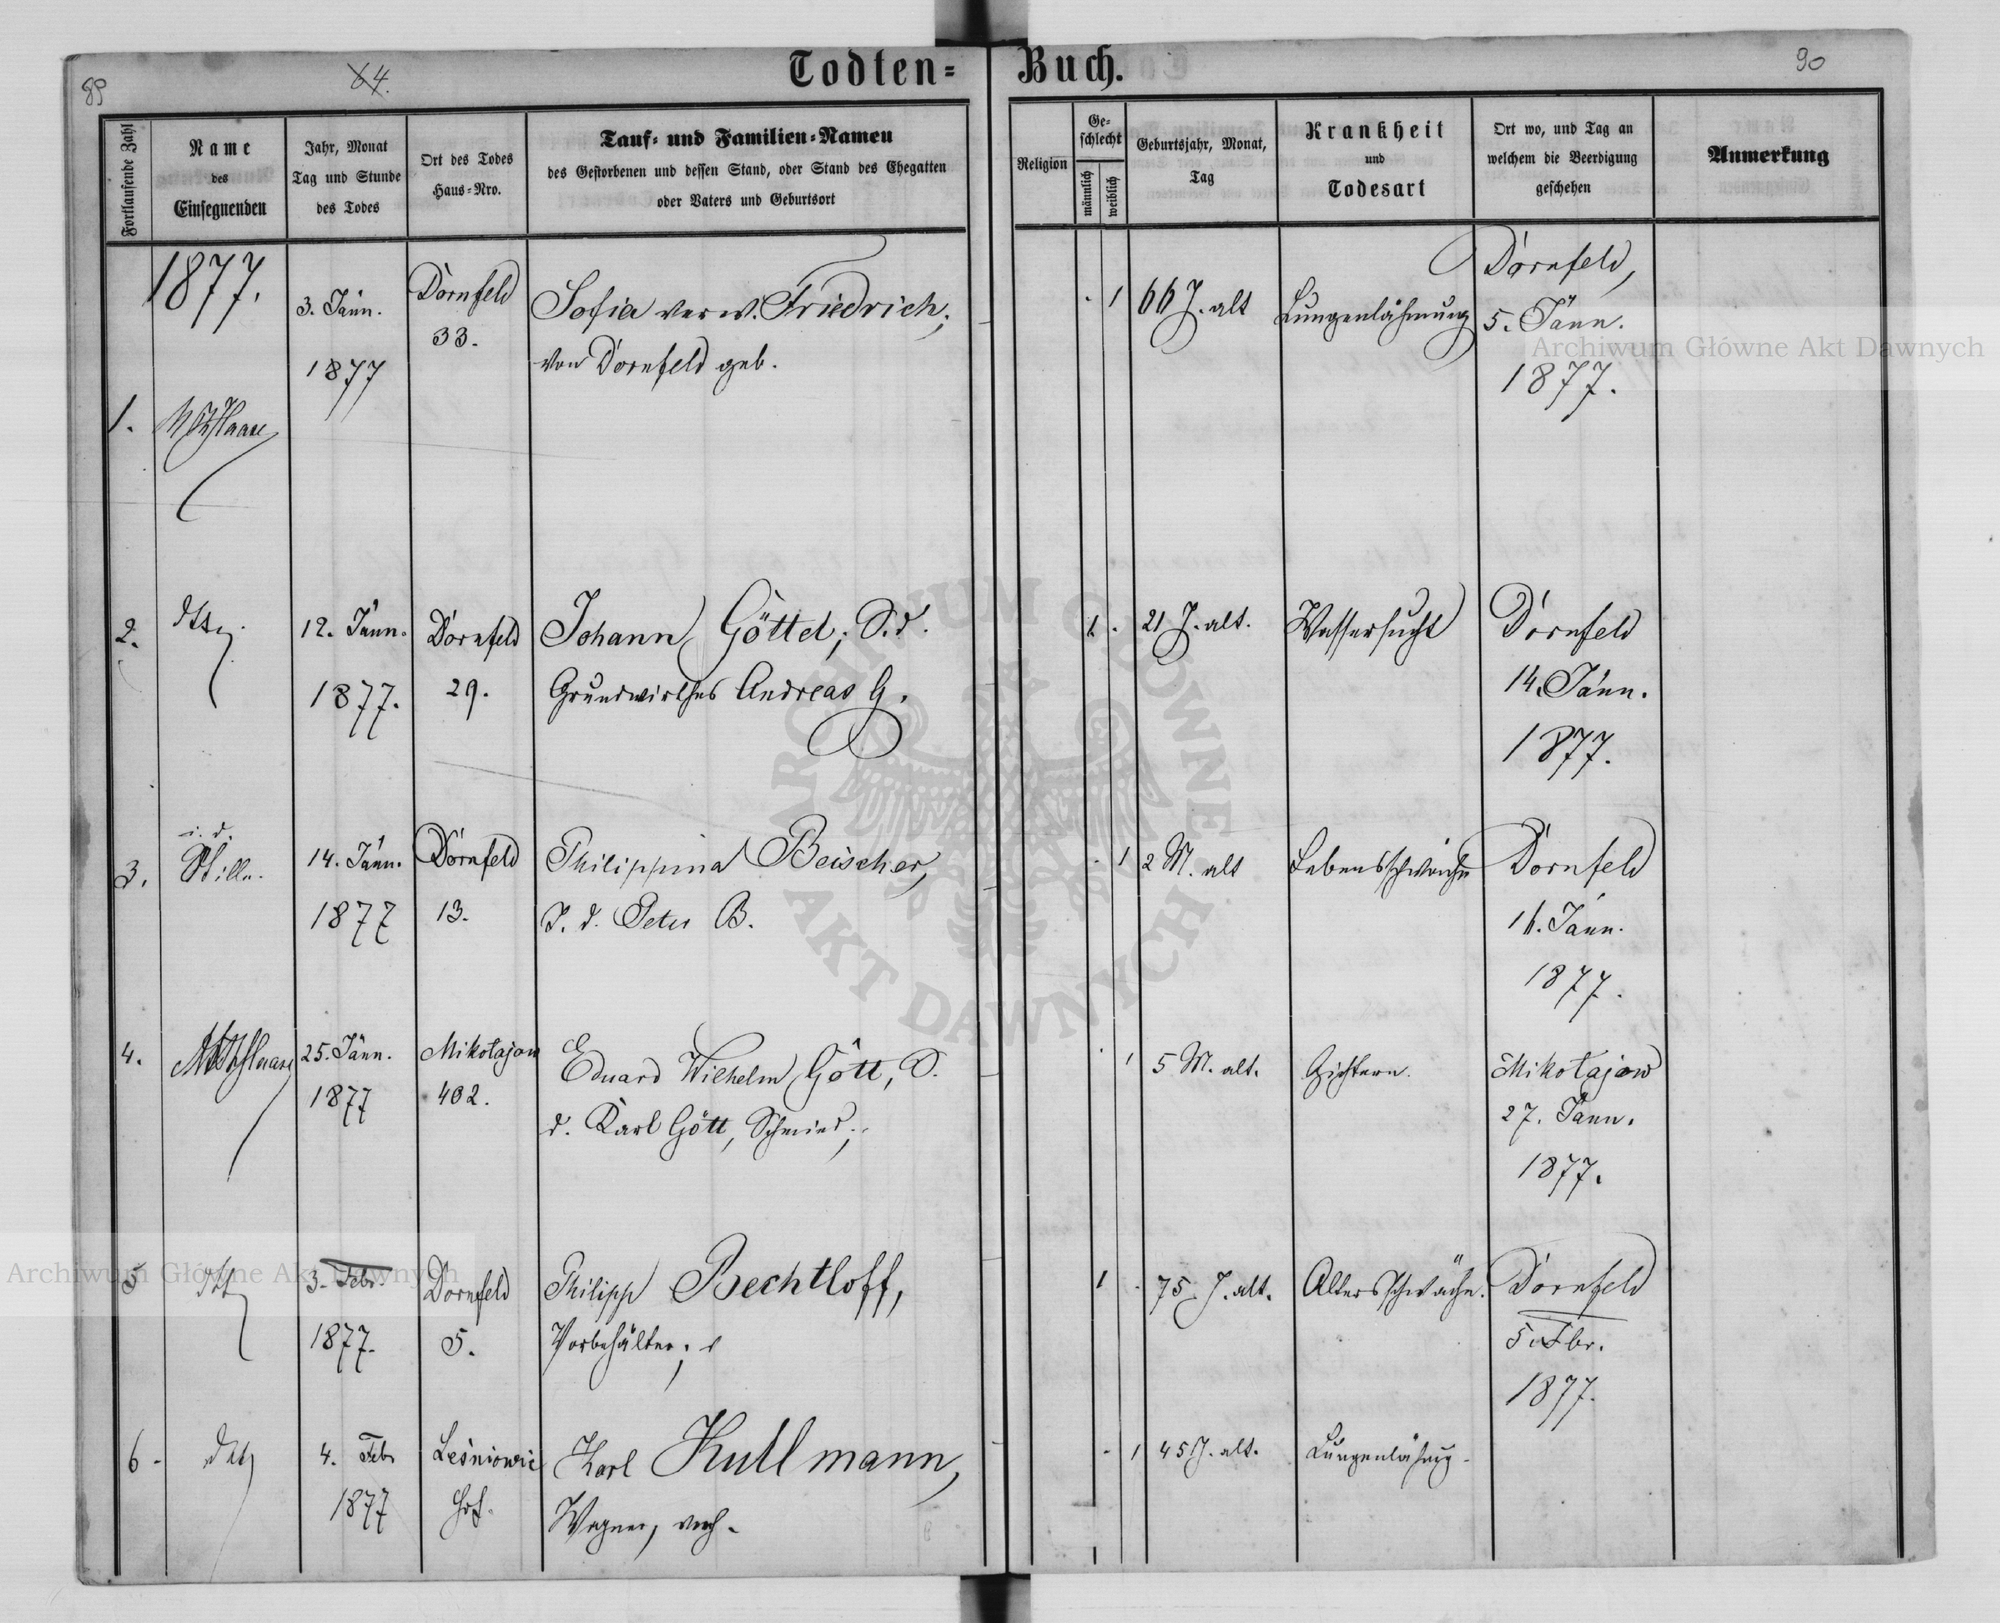 89
64.
Todten=Buch.
90
Fortlaufende Zahl
Name
des
Einsegnenden
Jahr, Monat
Tag und Stunde
des Todes
Ort des Todes
Haus=Nro.
Tauf= und Familien=Namen
des Gestorbenen und dessen Stand, oder Stand des Ehegatten
oder Vaters und Geburtsort
Religion
Ge-
schlecht
männlich
weiblich
Geburtsjahr, Monat,
Tag
Krankheit
und
Todesart
Ort wo, und Tag an
welchem die Beerdigung
geschehen
Anmerkung
1877.
1.
3. Jänn.
1877
Dornfeld
33.
Sofia verw. Friedrich,
von Dornfeld geb.
. 1
66 J. alt
Lungenlähmung
Dornfeld,
5. Jänn.
1877.
2.
12. Jänn.
1877.
Dornfeld
29.
Johann Göttel, S. d.
Grundwirthes Andreas G.
1 .
21 J. alt.
Wassersucht
Dornfeld
14. Jänn.
1877.
3.
i. d.
Stille.
14. Jänn.
1877
Dornfeld
13.
Philippina Beischer,
T. d. Peter B.
. 1
2 M. alt
Lebensschwäche
Dornfeld
16. Jänn.
1877.
4.
25. Jänn.
1877
Mikołajow
402.
Eduard Wilhelm Gött, S.
d. Karl Gött, Schmied;
. 1
5 M. alt.
Mikołajow
27. Jänn.
1877.
5
3. Febr.
1877.
Dornfeld
5.
Philipp Bechtloff,
Vorbehälter;
1 .
75 J. alt.
Altersschwäche.
Dornfeld
5. Fbr.
1877.
6.
4. Feb
1877
Leśniowic
Hof.
Karl Kullmann,
Wagner, verh.
. 1
45 J. alt.
Lungenlähmg.
Archiwum Główne Akt Dawnych
Archiwum Główne Akt Dawnych
ARCHIWUM GŁÓWNE
AKT DAWNYCH